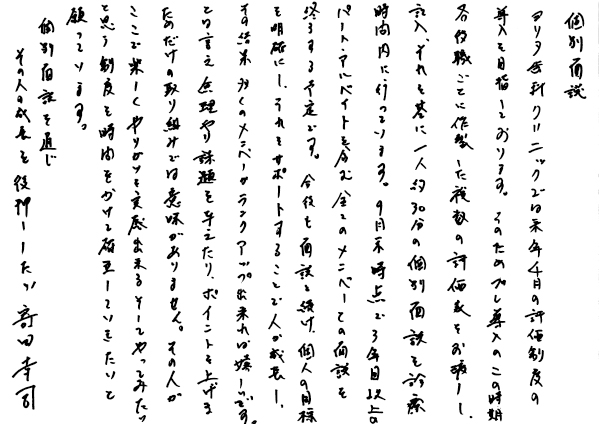 個別面談
ヨリタ歯科クリニックでは来年4月の評価制度の
導入を目指しております。そのためプレ導入のこの時期
各役職ごとに作製した複数の評価表をお渡しし、
記入、それを基に一人約30分の個別面談を診療
時間内に行っています。9月末時点で3年目以上の
パート・アルバイトを含む全てのメンバーとの面談を
終了する予定です。今後も面談を続け、個人の目標
を明確にし、それをサポートすることで人が成長し、
その結果多くのメンバーがランクアップ出来れば嬉しいです。
とは言え無理やり課題を与えたり、ポイントを上げる
ためだけの取り組みでは意味がありません。その人が
ここで楽しくやりがいを実感出来るそしてやってみたい
と思う制度を時間をかけて確立していきたいと
願っています。
個別面談を通じ
その人の成長を後押ししたい 寄田幸司